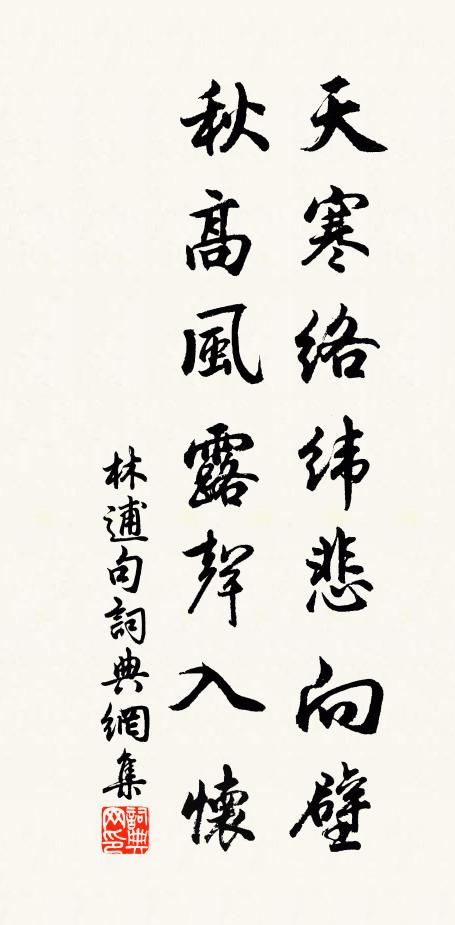 天寒絡緯悲向壁
秋高風露聲入懷
林逋句詞典網集
詞典网印